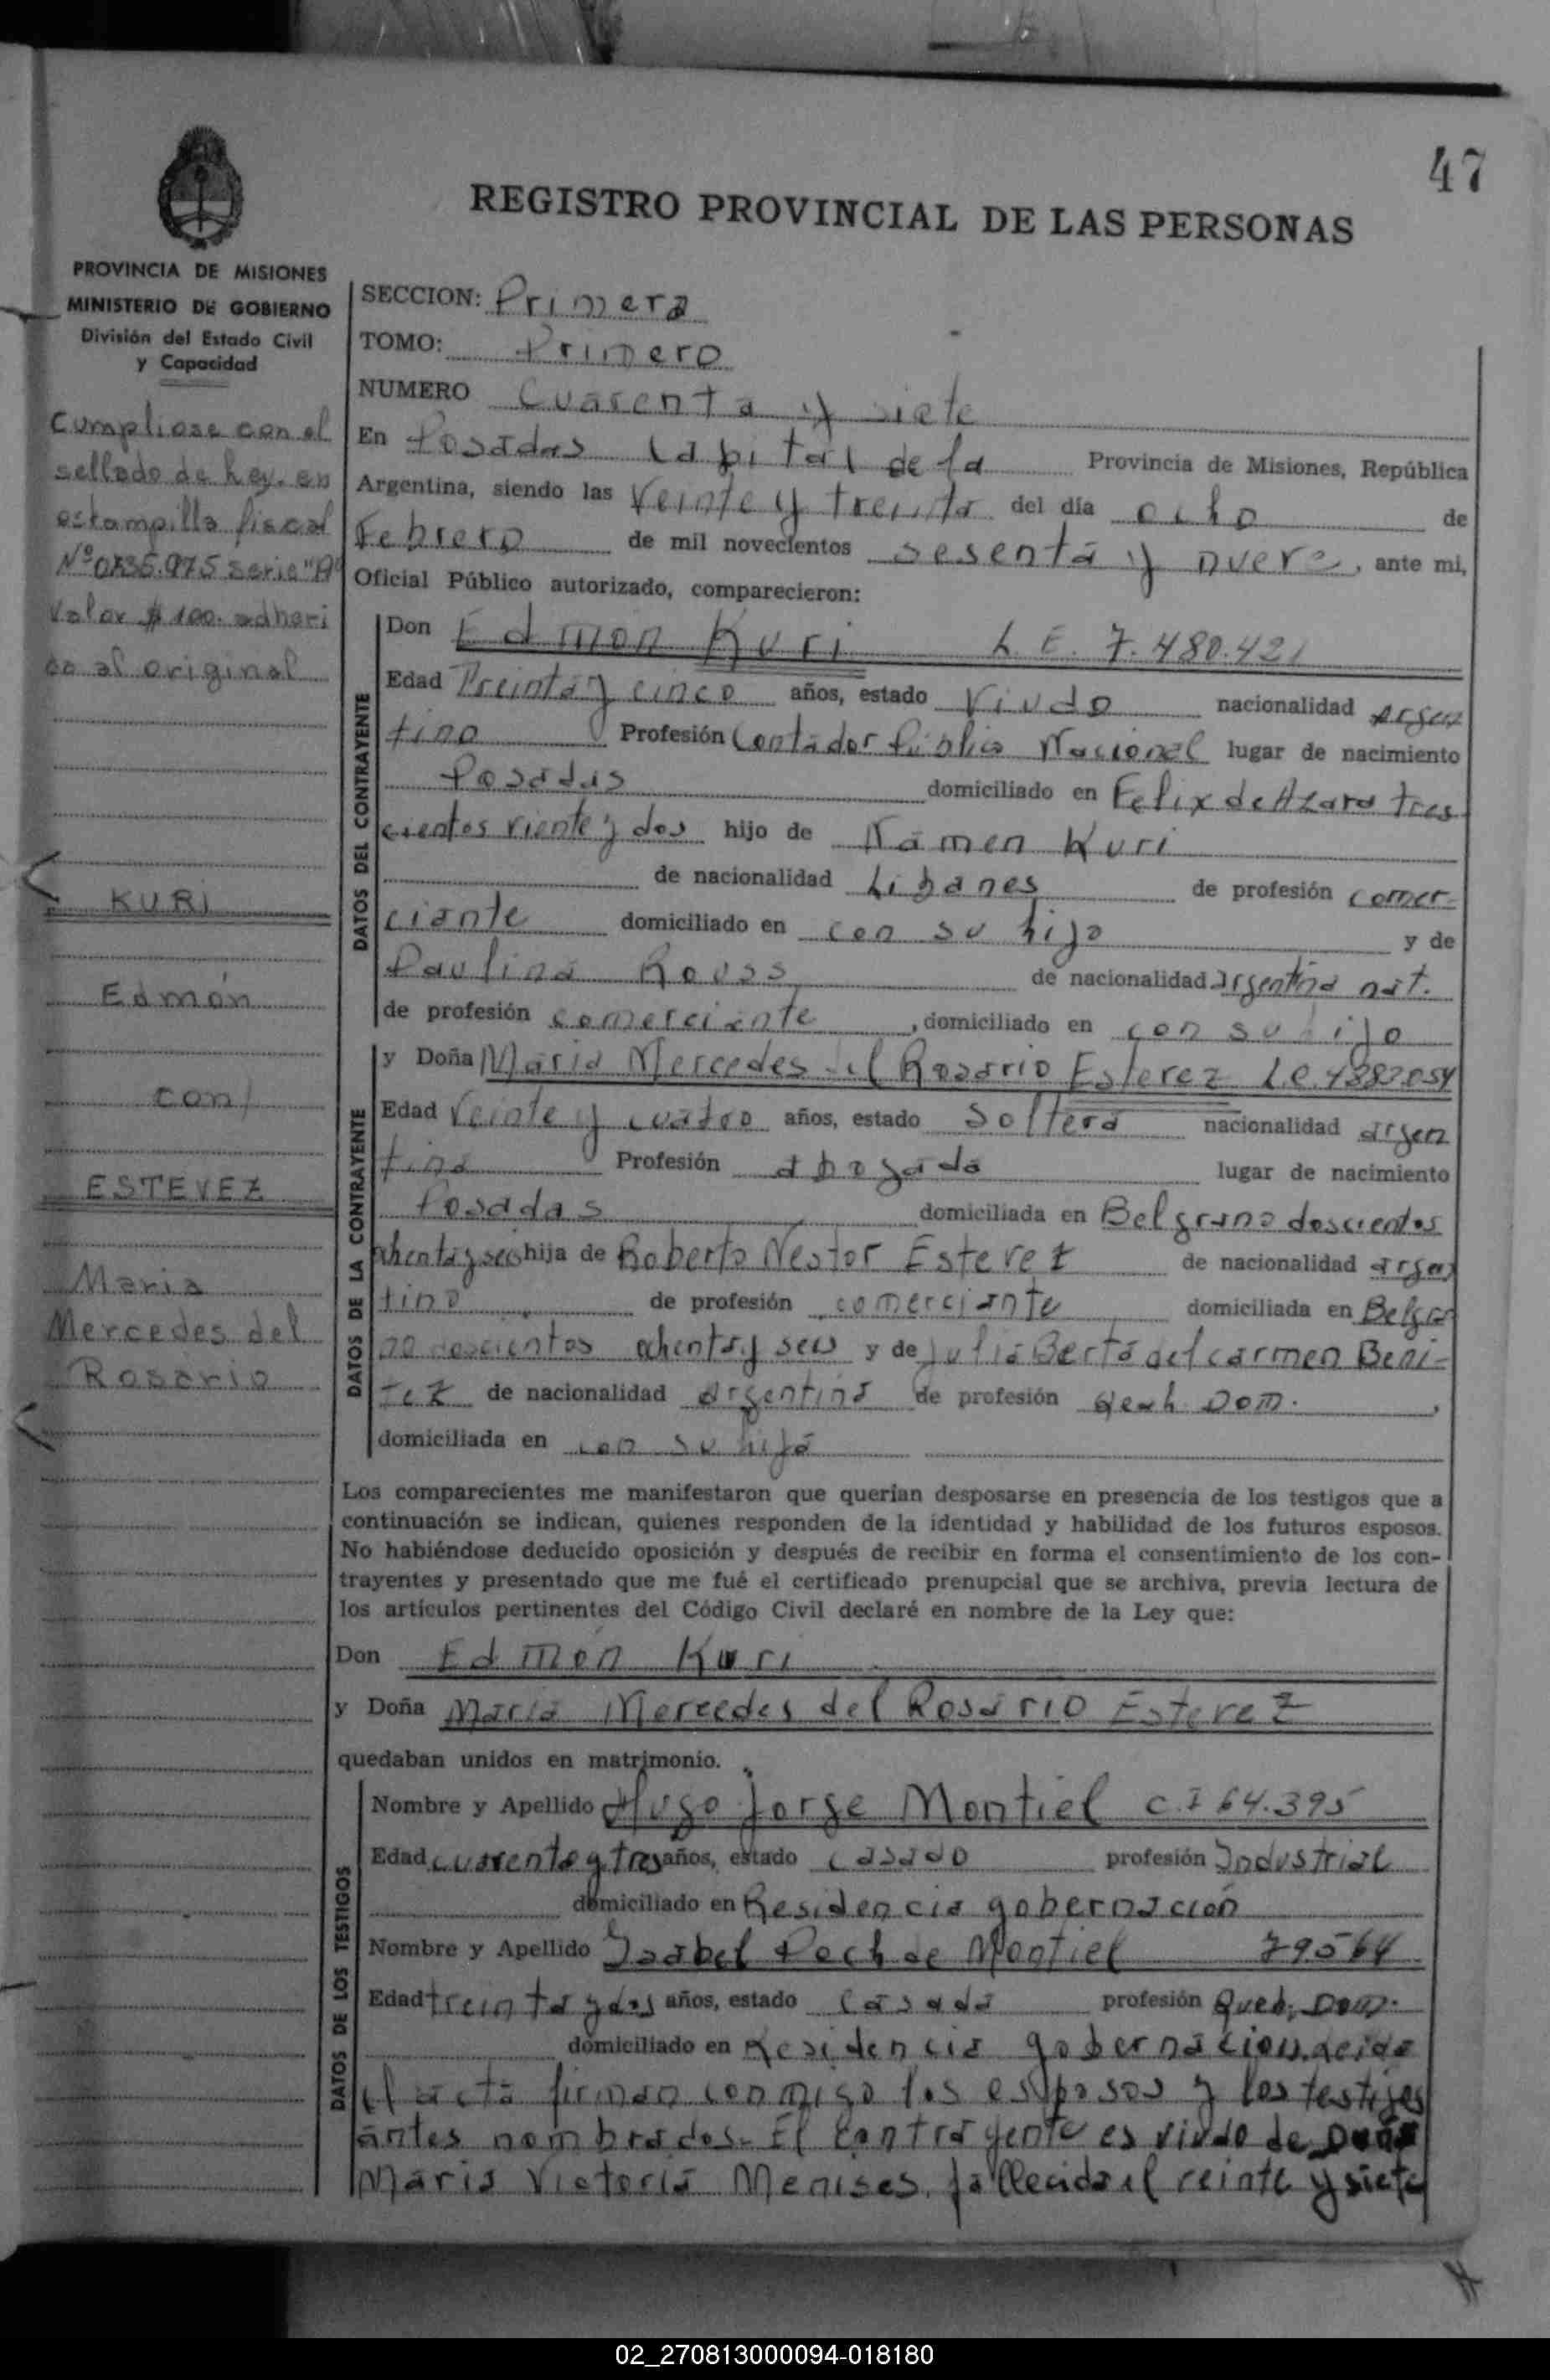 47
REGISTRO PROVINCIAL DE LAS PERSONAS
PROVINCIA DE MISIONES
MINISTERIO DE GOBIERNO
División del Estado Civil
y Capacidad
Cumpliose con el
sellado de Ley. en
estampilla fiscal
Nº 0735.975 serie "A"
Valor $ 100. adheri
do al original
KURI
Edmón
con/
ESTEVEZ
Maria
Mercedes del
Rosario
SECCION: Primera
TOMO: Primero
NUMERO Cuarenta y siete
En Posadas Capital de la Provincia de Misiones, República
Argentina, siendo las Veinte y treinta del día ocho de
Febrero de mil novecientos sesenta y nueve, ante mi,
Oficial Público autorizado, comparecieron:
DATOS DEL CONTRAYENTE
Don Edmon Kuri L.E. 7.480.421
Edad Treinta y cinco años, estado Viudo nacionalidad argen
tino Profesión Contador Público Nacional lugar de nacimiento
Posadas domiciliado en Felix de Azara tres
cientos viente y dos hijo de Namen Kuri
de nacionalidad Libanes de profesión comer-
ciante domiciliado en con su hijo y de
Paulina Rouss de nacionalidad argentina nat.
de profesión comerciante, domiciliado en con su hijo
DATOS DE LA CONTRAYENTE
y Doña Maria Mercedes del Rosario Estevez L.C. 4883.054
Edad Veinte y cuatro años, estado Soltera nacionalidad argen
tina Profesión abogada lugar de nacimiento
Posadas domiciliada en Belgrano doscientos
ochenta y seis hija de Roberto Nestor Estevez de nacionalidad argen
tino de profesión comerciante domiciliada en Belgra
no doscientos ochenta y seis y de Julia Berta del carmen Beni-
tez de nacionalidad argentina de profesión Dom.,
domiciliada en con su hija
Los comparecientes me manifestaron que querían desposarse en presencia de los testigos que a
continuación se indican, quienes responden de la identidad y habilidad de los futuros esposos.
No habiéndose deducido oposición y después de recibir en forma el consentimiento de los con-
trayentes y presentado que me fué el certificado prenupcial que se archiva, previa lectura de
los artículos pertinentes del Código Civil declaré en nombre de la Ley que:
Don Edmon Kuri
y Doña Maria Mercedes del Rosario Estevez
quedaban unidos en matrimonio.
DATOS DE LOS TESTIGOS
Nombre y Apellido Hugo Jorge Montiel C.I 64.395
Edad cuarenta y tres años, estado casado profesión Industrial
domiciliado en Residencia gobernación
Nombre y Apellido Isabel Pech de Montiel 79564
Edad treinta y dos años, estado casada profesión Queh. Dom.
domiciliado en Residencia gobernacion. Leida
el acta firman conmigo los esposos y los testigos
antes nombrados. El contrayente es viudo de Doña
Maria Victoria Menises, fallecida el veinte y siete
02_270813000094-018180